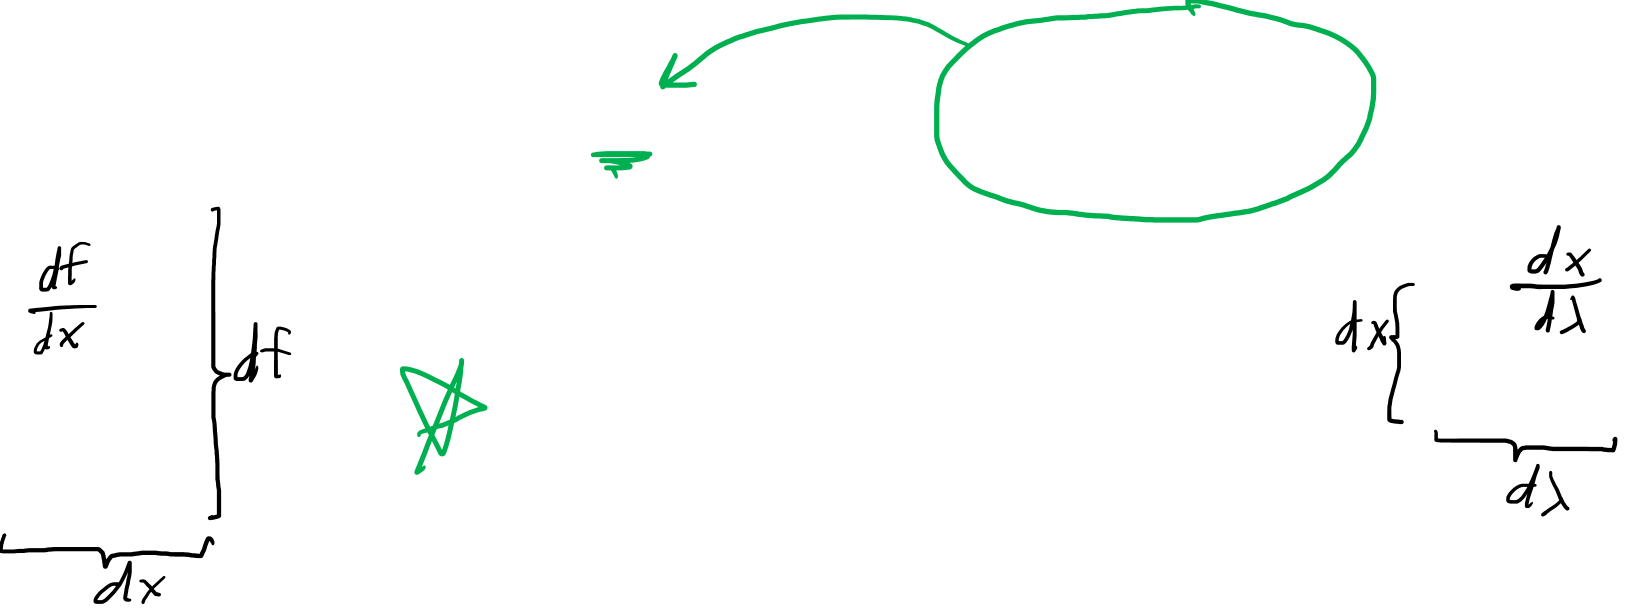 df
dx
df
dx
dx
dλ
dx
dλ